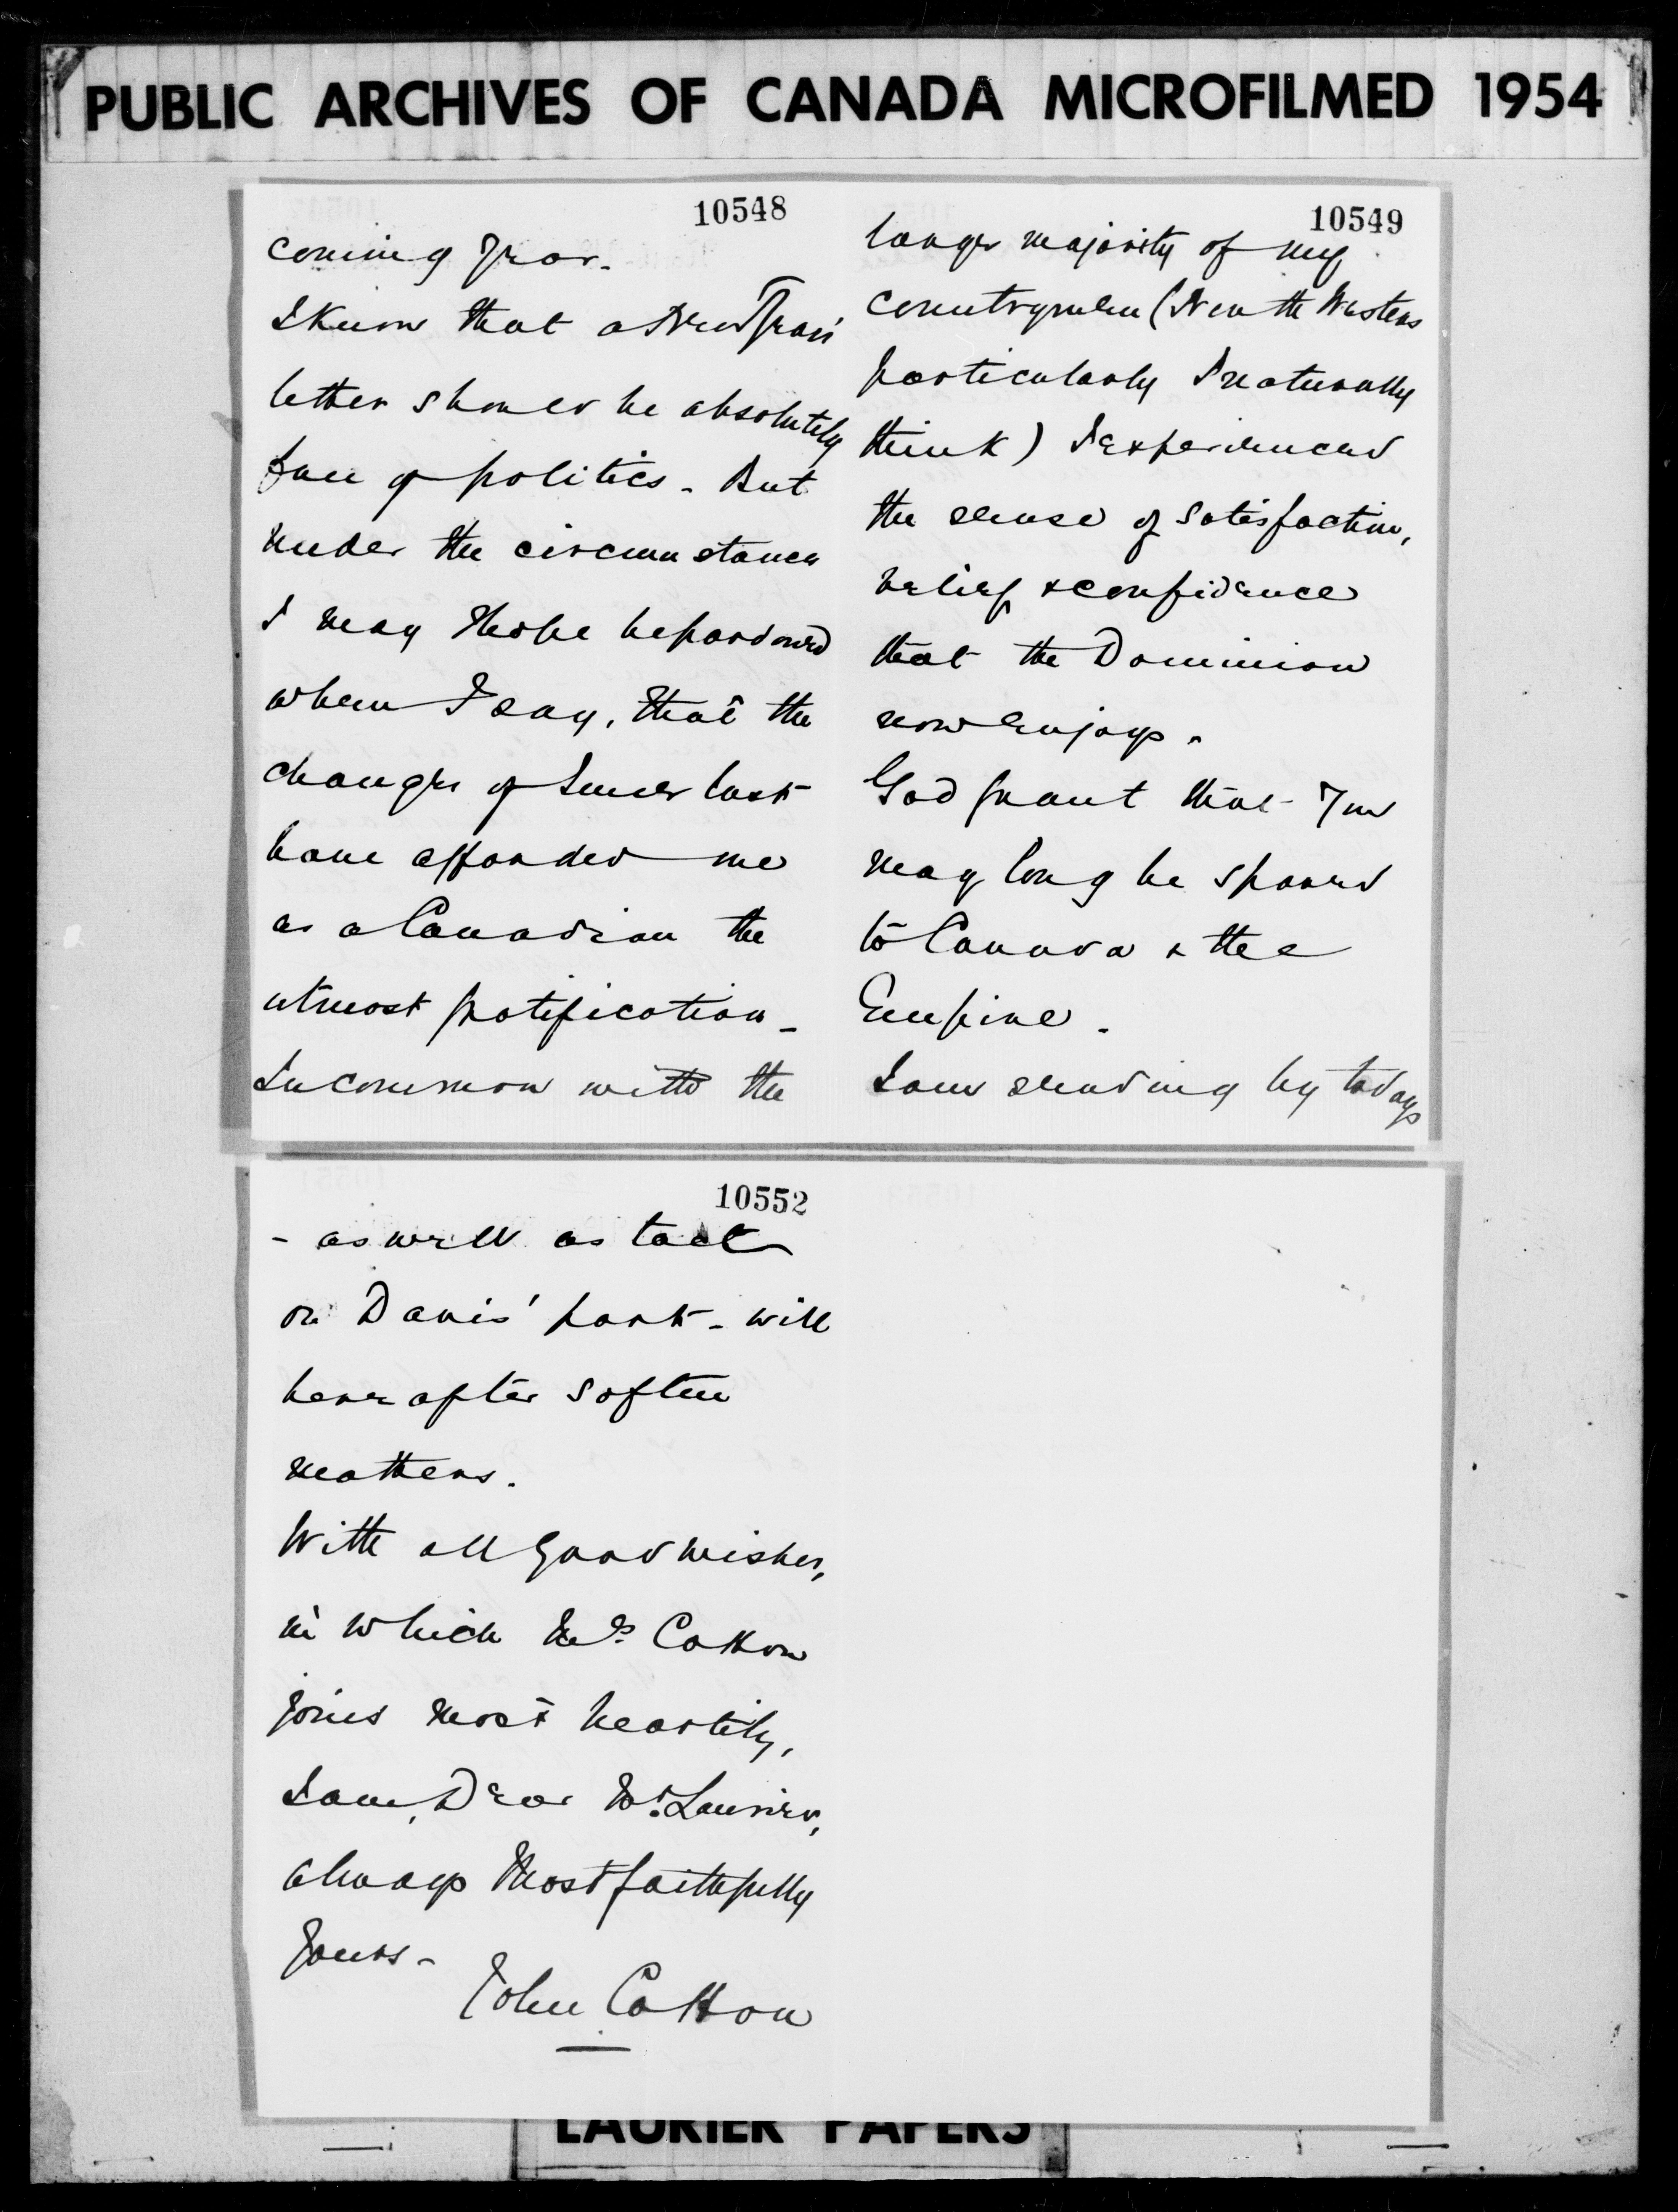 PUBLIC ARCHIVES OF CANADA MICROFILMED 1954
10548
coming year.
I know that a New Years
letter should be absolutely
free of politics. But
under the circumstances
I may I hope be pardoned
when I say, that the
changes of June last
have afforded me
as a Canadian the
utmost gratification_
In common with the
10549
larger majority of my
countrymen (North Westers
particularly I naturally
think) I experienced
the sense of satisfaction,
relief & confidence
that the Dominion
now enjoys.
God grant that you
may long be spared
to Canada & the
Empire.
I am sending by todays
10552
- as well as tact
on Davis' part - will
hereafter soften
matters.
With all good wishes,
in which Mrs Cotton
joins most heartily,
I am, Dear Mr. Laurier,
always most faithfully
Yours -
John Cotton
LAURIER PAPERS